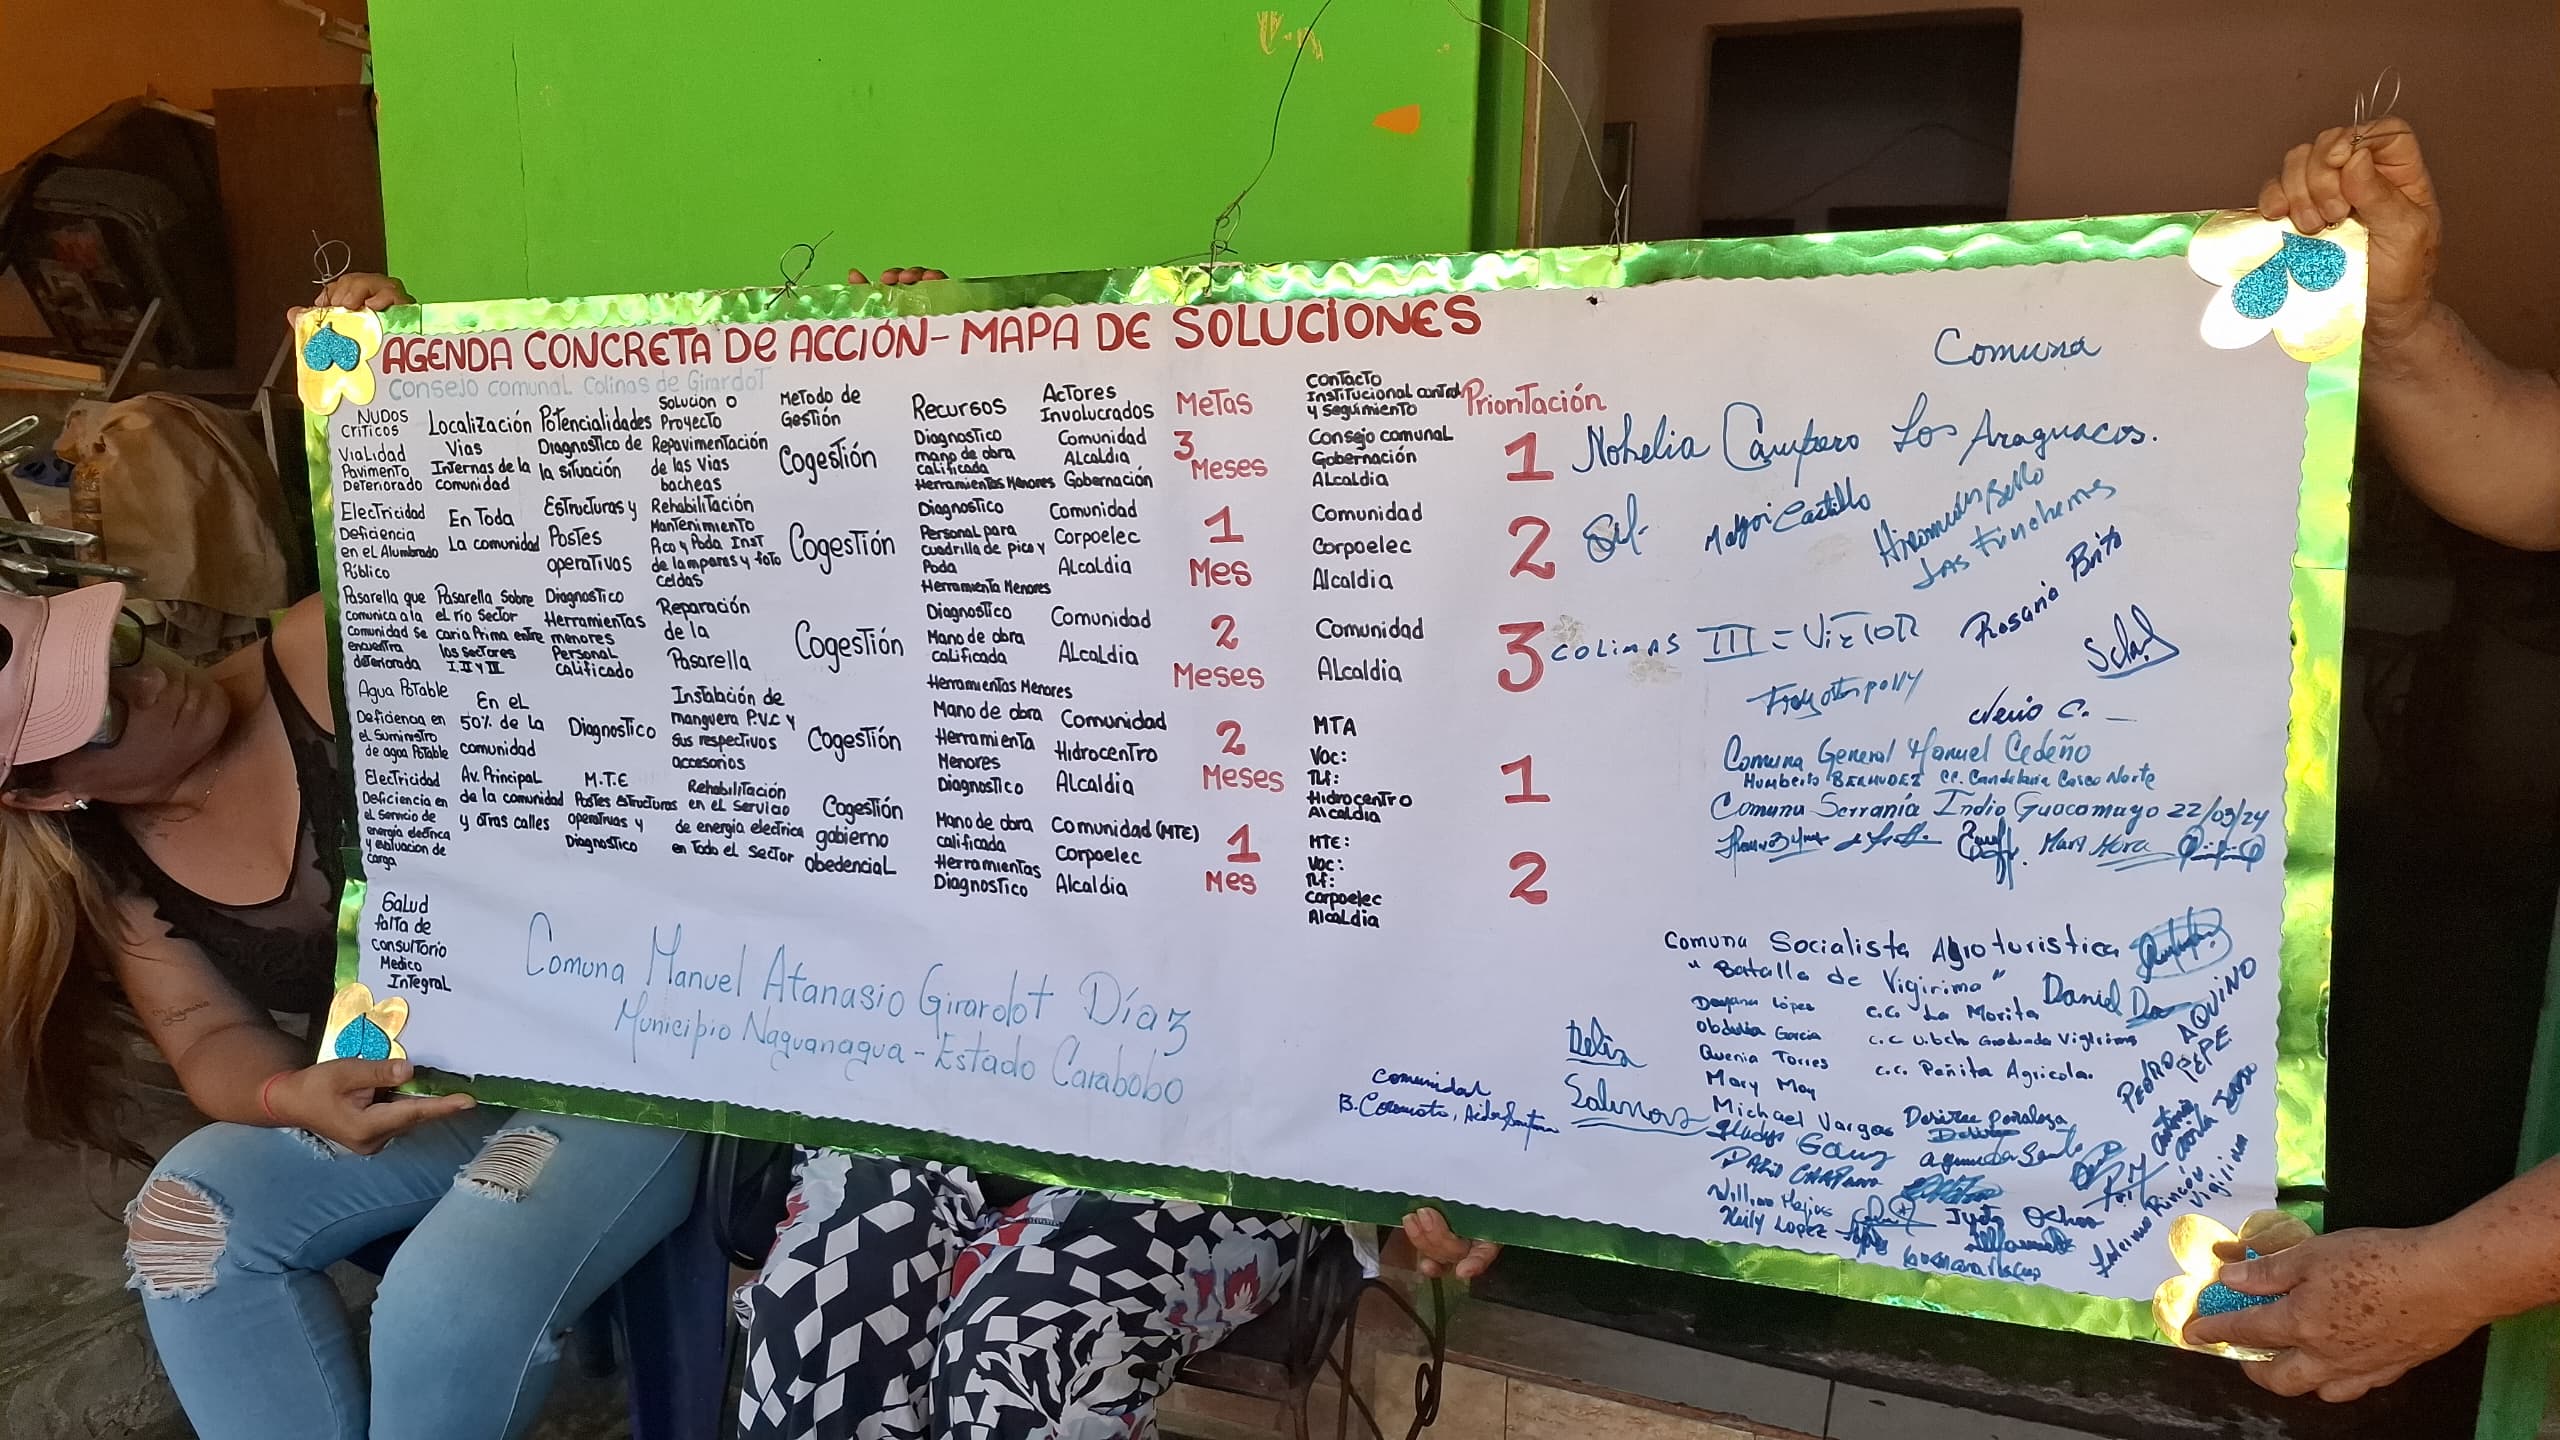 AGENDA CONCRETA DE ACCIÓN - MAPA DE SOLUCIONES
Consejo comunal Colinas de Girardot
NUDOS CRÍTICOS
Localización
Potencialidades
Solucion o Proyecto
Metodo de Gestión
Recursos
Actores Involucrados
Metas
Contacto Institucional control y seguimiento
Prioritación
Vialidad
Pavimento
Deteriorado
Vias
Internas de la
comunidad
Diagnostico de
la situación
Repavimentación
de las Vias
bacheas
Cogestión
Diagnostico
mano de obra
calificada
Herramientas Menores
Comunidad
Alcaldia
Gobernación
3
Meses
Consejo comunal
Gobernación
Alcaldia
1
Electricidad
Deficiencia
en el Alumbrado
Público
En Toda
La comunidad
Estructuras y
Postes
operativos
Rehabilitación
Mantenimiento
Pico y Poda Inst
de lamparas y foto
celdas
Cogestión
Diagnostico
Personal para
cuadrilla de pico y
Poda
Herramienta Menores
Comunidad
Corpoelec
Alcaldia
1
Mes
Comunidad
Corpoelec
Alcaldia
2
Pasarella que
comunica a la
comunidad se
encuentra
deteriorada
Pasarella sobre
el río sector
caria Prima entre
los sectores
I, II y III
Diagnostico
Herramientas
menores
Personal
calificado
Reparación
de la
Pasarella
Cogestión
Diagnostico
Mano de obra
calificada
Herramientas Menores
Comunidad
Alcaldia
2
Meses
Comunidad
Alcaldia
3
Agua Potable
Deficiencia en
el Suministro
de agua Potable
En el
50% de la
comunidad
Diagnostico
Instalación de
manguera P.V.C y
sus respectivos
accesorios
Cogestión
Mano de obra
Herramienta
Menores
Diagnostico
Comunidad
Hidrocentro
Alcaldia
2
Meses
MTA
Voc:
Tlf:
Hidrocentro
Alcaldia
1
Electricidad
Deficiencia en
el Servicio de
energía electrica
y evaluación de
carga
Av. Principal
de la comunidad
y otras calles
M.T.E
Postes Estructuras
operativas y
Diagnostico
Rehabilitación
en el servicio
de energia electrica
en Todo el sector
Cogestión
gobierno
obedencial
Mano de obra
calificada
Herramientas
Diagnostico
Comunidad (MTE)
Corpoelec
Alcaldia
1
Mes
MTE:
Voc:
Tlf:
Corpoelec
Alcaldia
2
Salud
falta de
consultorio
Medico
Integral
Comuna Manuel Atanasio Girardot Díaz
Municipio Naguanagua - Estado Carabobo
Comuna
Nohelia Campero Los Araguacos.
Castillo
Bello
Rosario Brito
COLINAS III = VICTOR
Nerio C.
Comuna General Manuel Cedeño
Humberto BERMUDEZ CC. Candelaria Casco Norte
Comuna Serranía Indio Guacamayo 22/03/24
Mary Mora
Comuna Socialista Agroturistica
"Batalla de Vigirima"
Daniel
Dayana López
c.c. La Morita
Obdulia Garcia
Quenia Torres
c.c. Peñita Agricola
Mary May
Michael Vargas
Desiree Peñaloza
Gladys
Justo Ochoa
Keily Lopez
PEDRO AQUINO
PEPE
Rincón
Vigirima
Delia
Comunidad